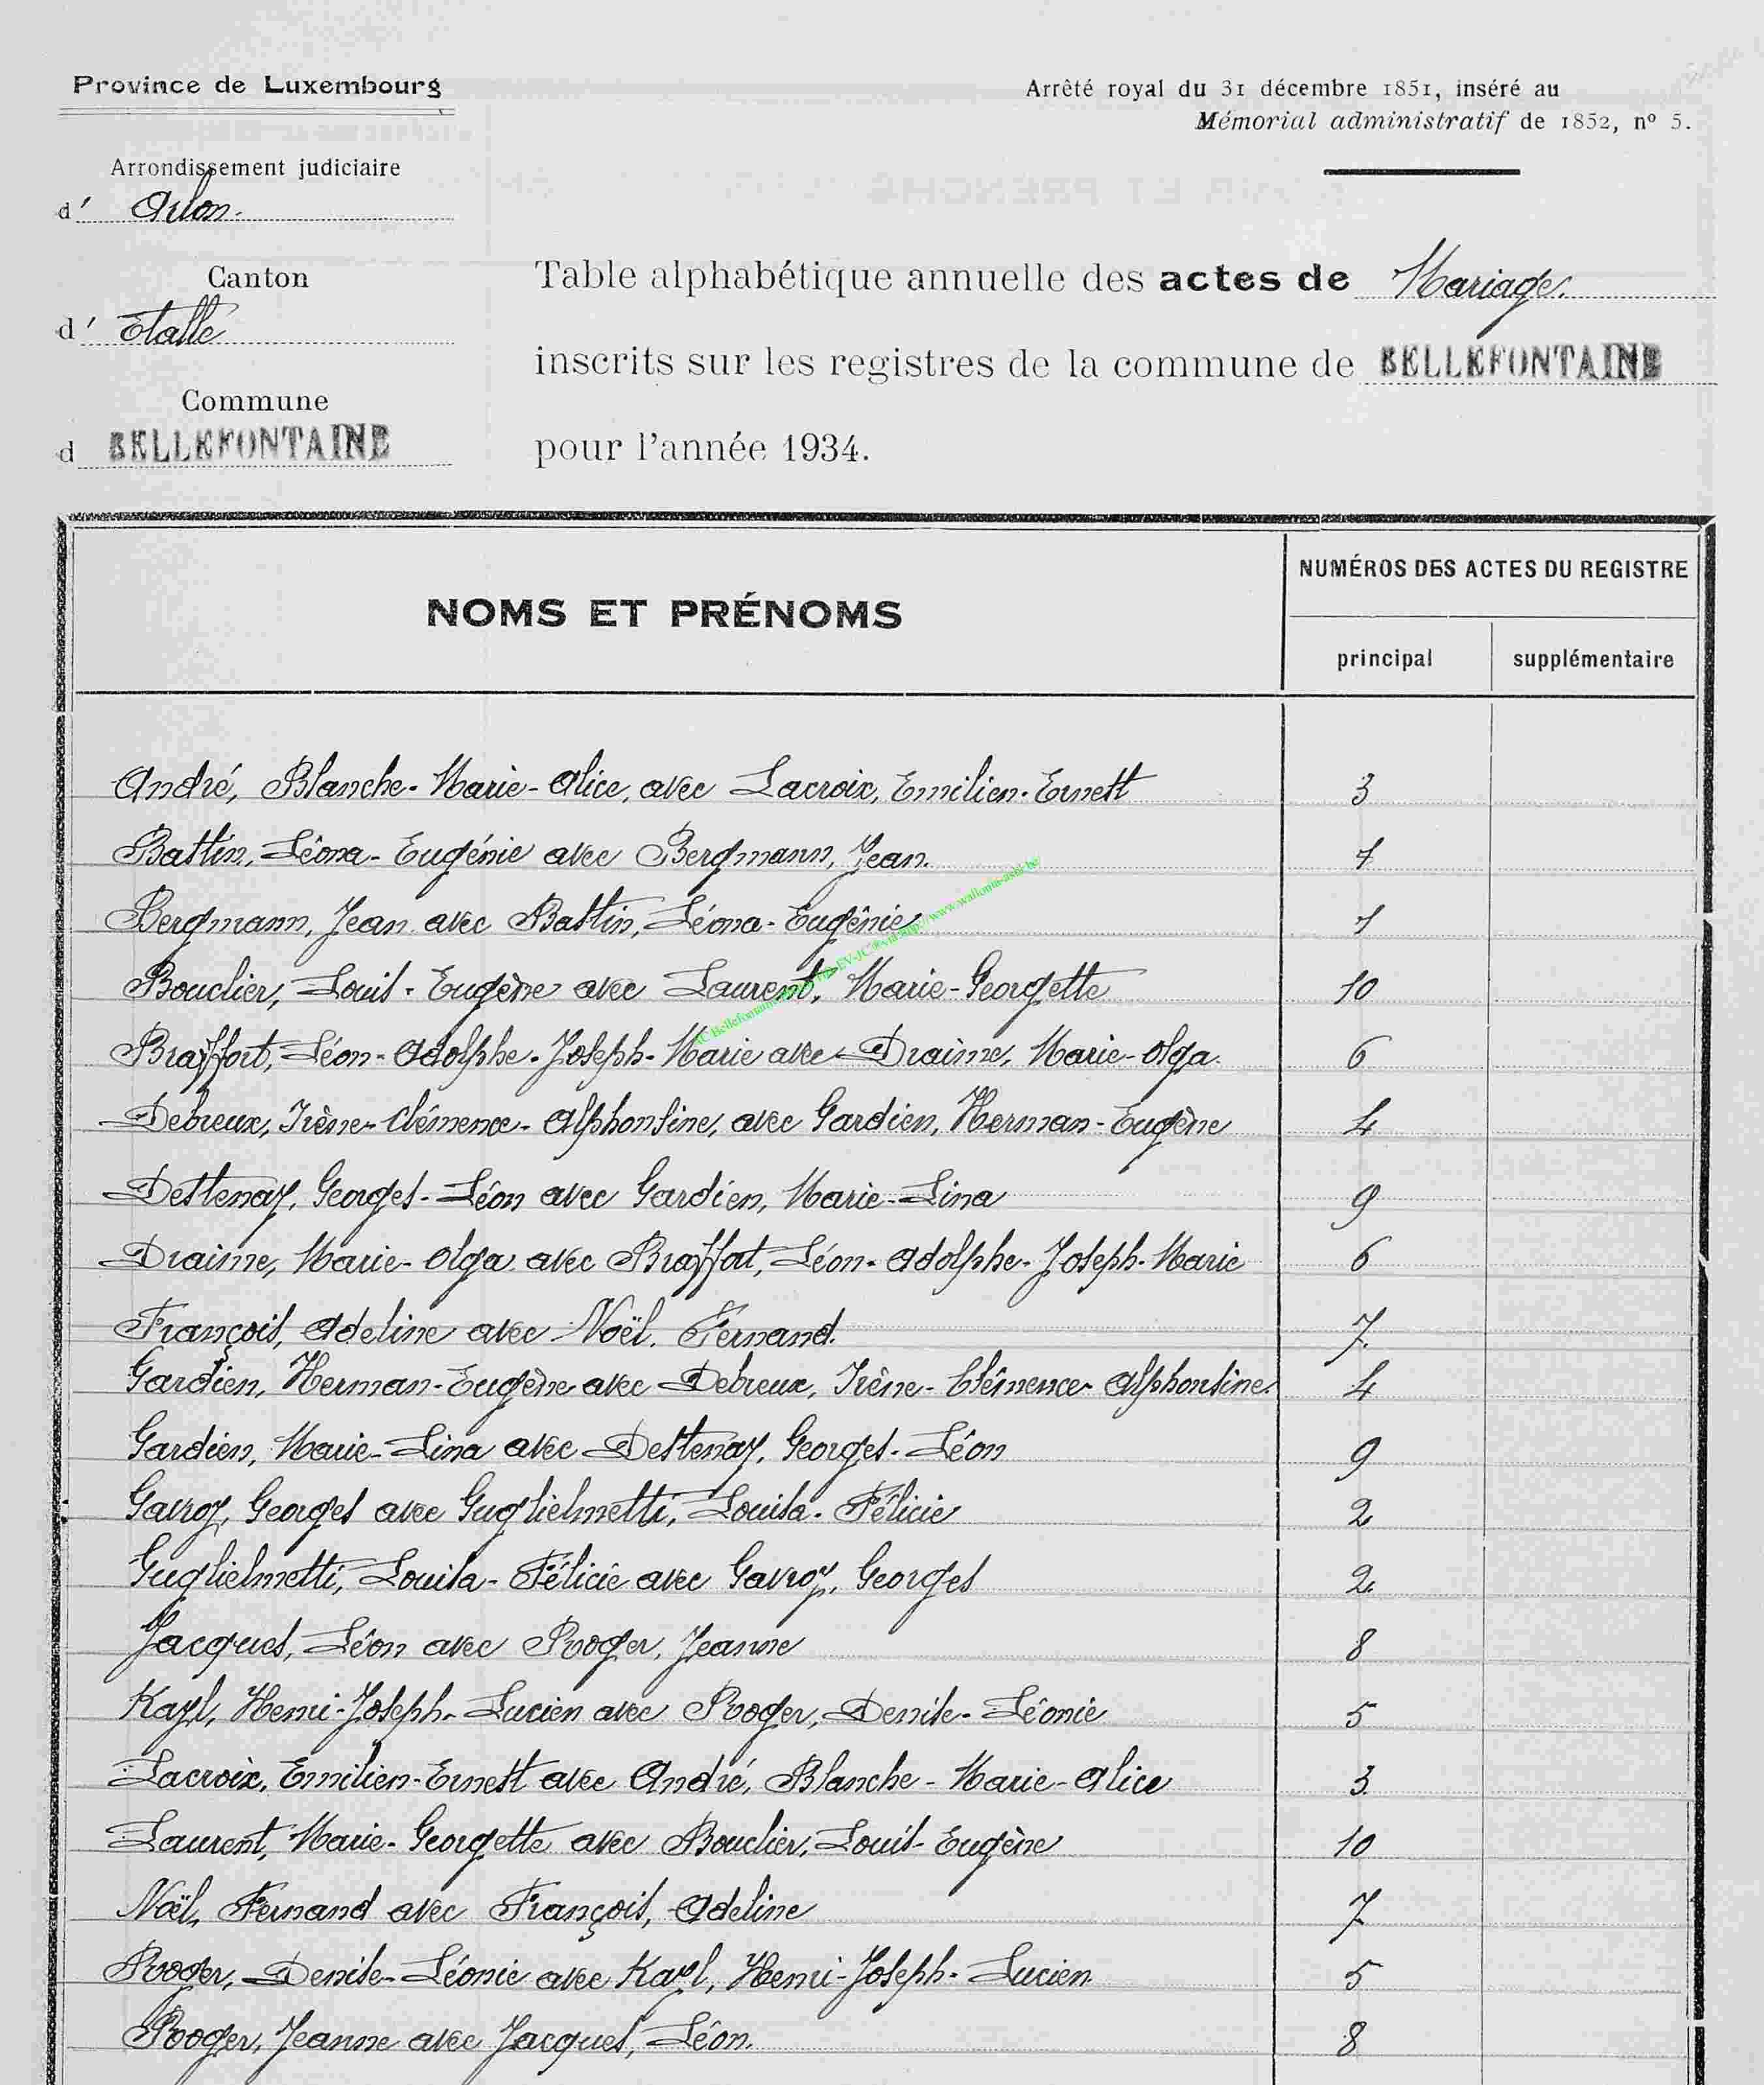 Province de Luxembourg
Arrêté royal du 31 décembre 1851, inséré au
Mémorial administratif de 1852, nº 5.
Arrondissement judiciaire
d' Arlon.
Canton
d' Etalle
Commune
d BELLEFONTAINE
Table alphabétique annuelle des actes de Mariage.
inscrits sur les registres de la commune de BELLEFONTAINE
pour l'année 1934.
NOMS ET PRÉNOMS
NUMÉROS DES ACTES DU REGISTRE
principal supplémentaire
André, Blanche-Marie-Alice, avec Lacroix, Emilien-Ernest 3
Battin, Léona-Eugénie avec Bergmann, Jean. 1
Bergmann, Jean avec Battin, Léona-Eugénie 1
Bouclier, Louis-Eugène avec Laurent, Marie-Georgette 10
Braffort, Léon-Adolphe-Joseph-Marie avec Draime, Marie-Olga. 6
Debreux, Irène-Clémence-Alphonsine, avec Gardien, Herman-Eugène 4
Destenay, Georges-Léon avec Gardien, Marie-Lina 9
Draime, Marie-Olga avec Braffort, Léon-Adolphe-Joseph-Marie 6
François, Adeline avec Noël, Fernand. 7
Gardien, Herman-Eugène avec Debreux, Irène-Clémence-Alphonsine. 4
Gardien, Marie-Lina avec Destenay, Georges-Léon 9
Gavroy, Georges avec Guglielmetti, Louisa-Félicie 2
Guglielmetti, Louisa-Félicie avec Gavroy, Georges 2
Jacques, Léon avec Roger, Jeanne 8
Kayl, Henri-Joseph-Lucien avec Roger, Denise-Léonie 5
Lacroix, Emilien-Ernest avec André, Blanche-Marie-Alice 3
Laurent, Marie-Georgette avec Bouclier, Louis-Eugène 10
Noël, Fernand avec François, Adeline 7
Roger, Denise-Léonie avec Kayl, Henri-Joseph-Lucien 5
Roger, Jeanne avec Jacques, Léon. 8